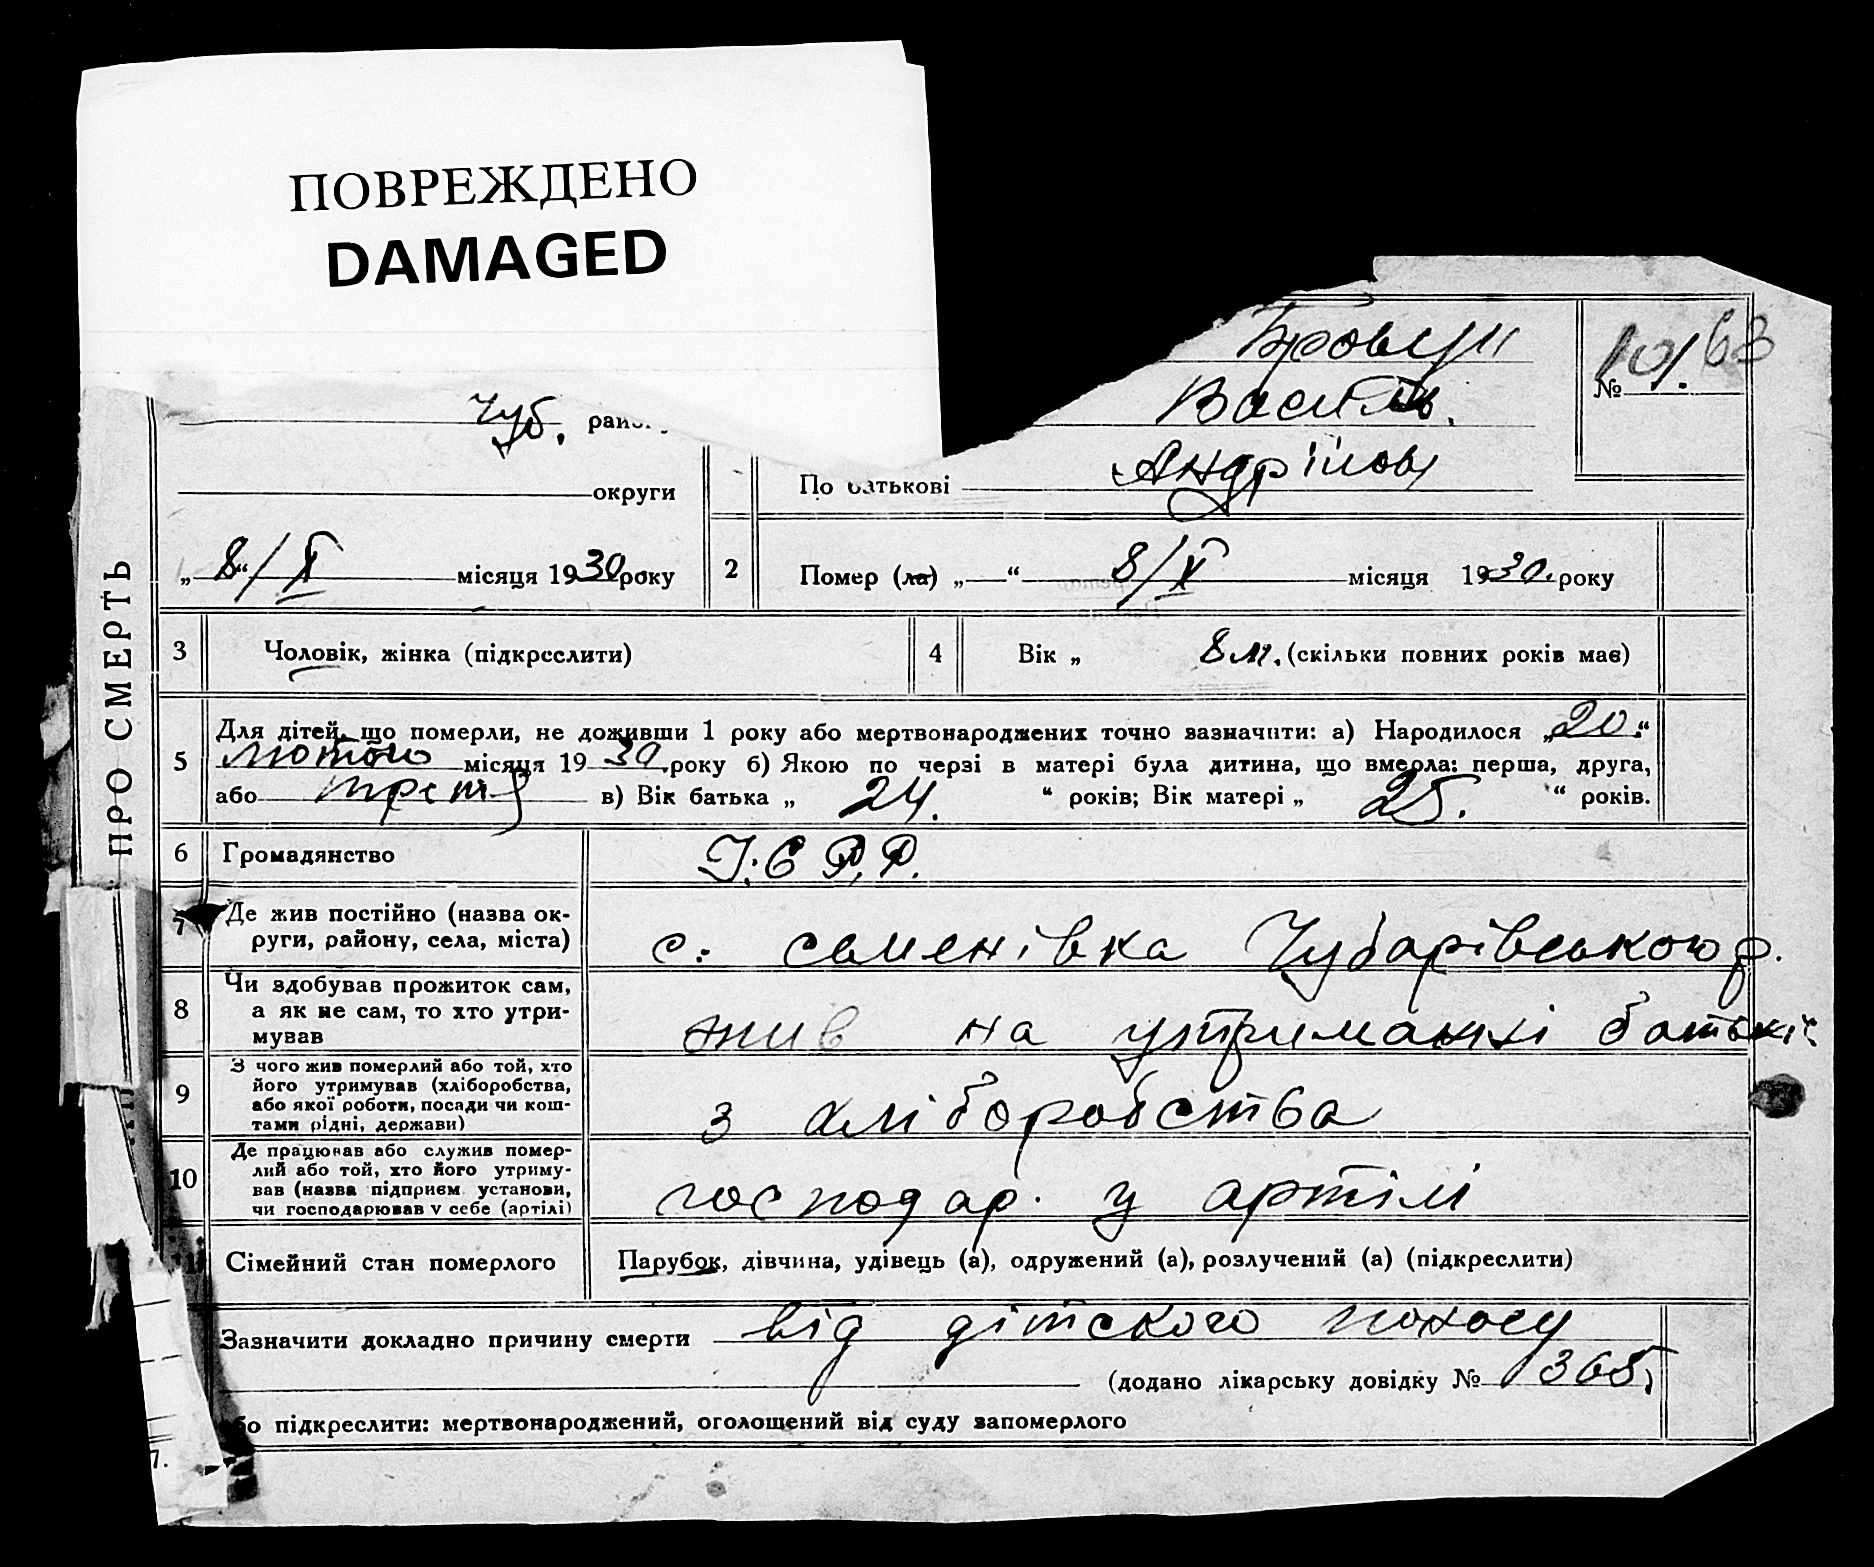 ПОВРЕЖДЕНО
DAMAGED
ПРО СМЕРТЬ
№ 101. 63
Василь.
Чуб. райо
По батькові Андрійов
округи
„8“/X місяця 1930 року
2 Помер (ла) „ “ 8/X місяця 1930. року
3 Чоловік, жінка (підкреслити)
4 Вік „ 8 м. (скільки повних років має)
5 Для дітей, що померли, не доживши 1 року або мертвонароджених точно зазначити: а) Народилося „20.“
лютого місяця 1930. року б) Якою по черзі в матері була дитина, що вмерла: перша, друга,
або третя в) Вік батька „ 24. “ років; Вік матері „ 25. “ років.
6 Громадянство
7 Де жив постійно (назва ок-
руги, району, села, міста)
с. семенівка Чубарівською р.
8 Чи здобував прожиток сам,
а як не сам, то хто утри-
мував
жив на утриманні батьків
9 З чого жив померлий або той, хто
його утримував (хліборобства,
або якої роботи, посади чи кош-
тами рідні, держави)
з хліборобства
10 Де працював або служив помер-
лий або той, хто його утриму-
вав (назва підприєм. установи,
чи господарював у себе (артілі)
господар. у артілі
11 Сімейний стан померлого
Парубок, дівчина, удівець (а), одружений (а), розлучений (а) (підкреслити)
Зазначити докладно причину смерти від дітского поносу
(додано лікарську довідку № 365
бо підкреслити: мертвонароджений, оголошений від суду запомерлого
7.